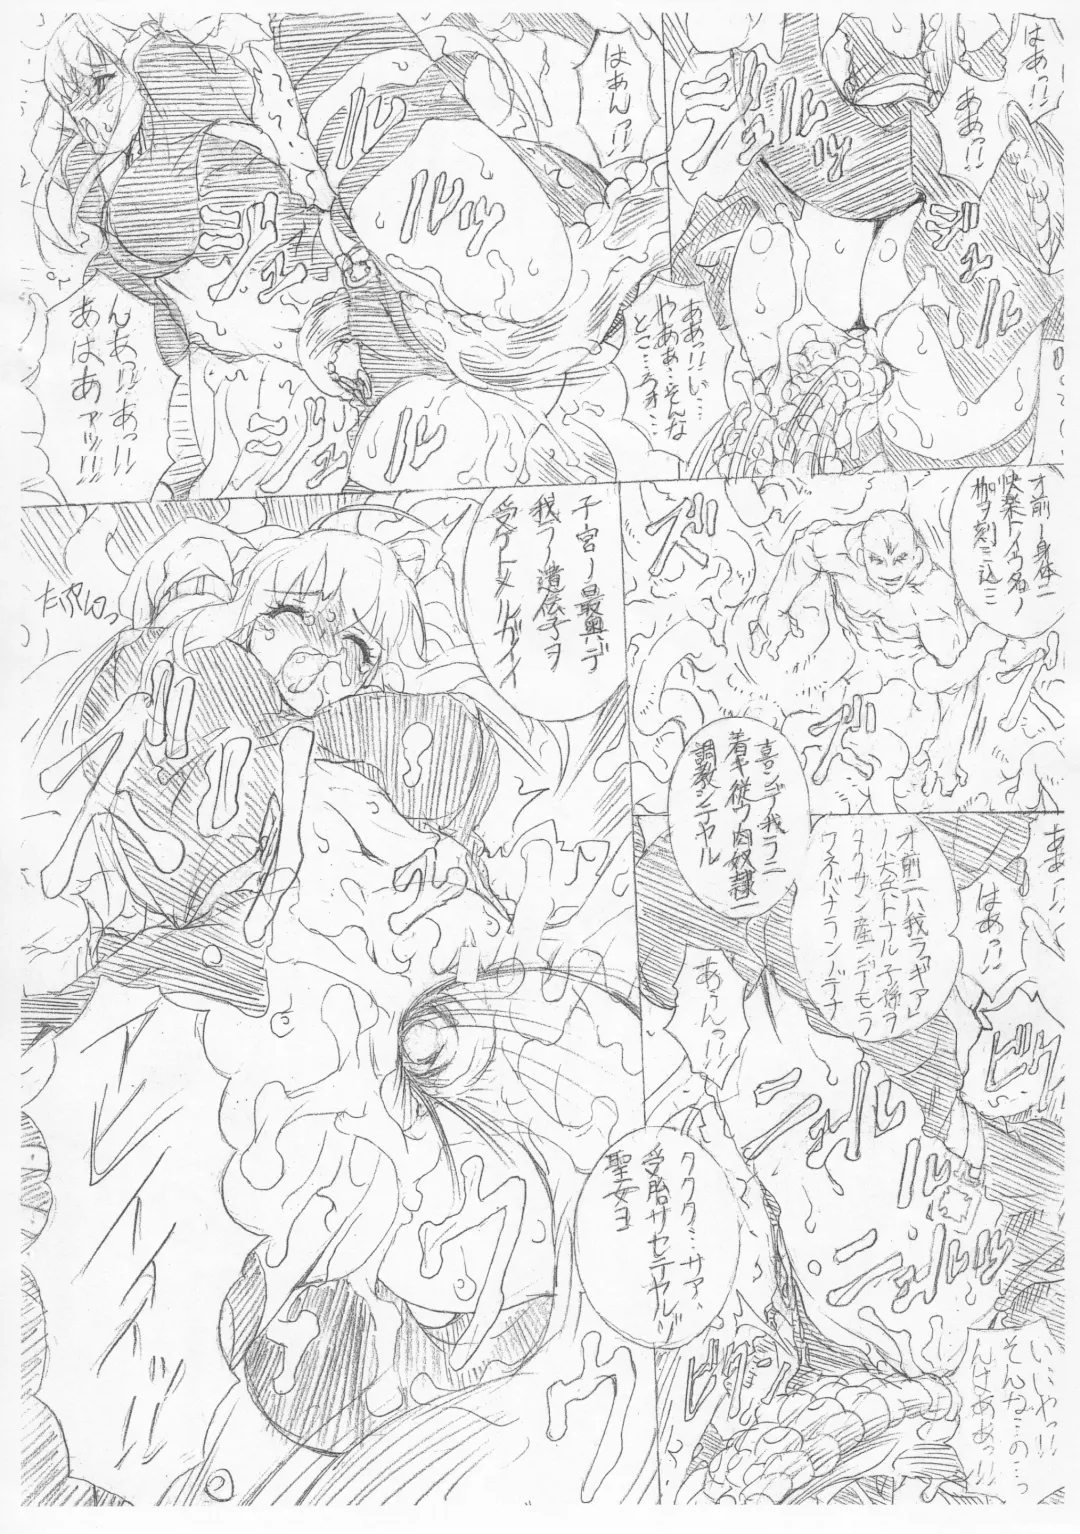 はあっ!!
あぁっ!!
ジュルッ
ジュルッ
はあんっ!!
ああっ!!い…
やああ…そんな
とこ…ろぉ…
ルルッ
ミヂュ
ニヂュ
んあっ!!あっ!!
あはあァッ!!
オ前ノ身体ニ
快楽トイウ名ノ
枷ヲ刻ミ込ミ
ズズズ
喜ンデ我ラニ
着キ従ウ肉奴隷ニ
調教シテヤル
オ前ニハ我ラ
タクサン産ンデモラ
ワネバナランノデナ
ああっ
はあっ!!
ビク
あうんっ!!
ニュルル
ルル
ニュルルッ
ククク…サア、
受胎サセテヤルゾ
聖女ヨ
い…いやっ!!
そんな…の…っ
んはああっ!!
ビクン
子宮ノ最奥デ
我ラノ遺伝子ヲ
受ケトメルガイイ